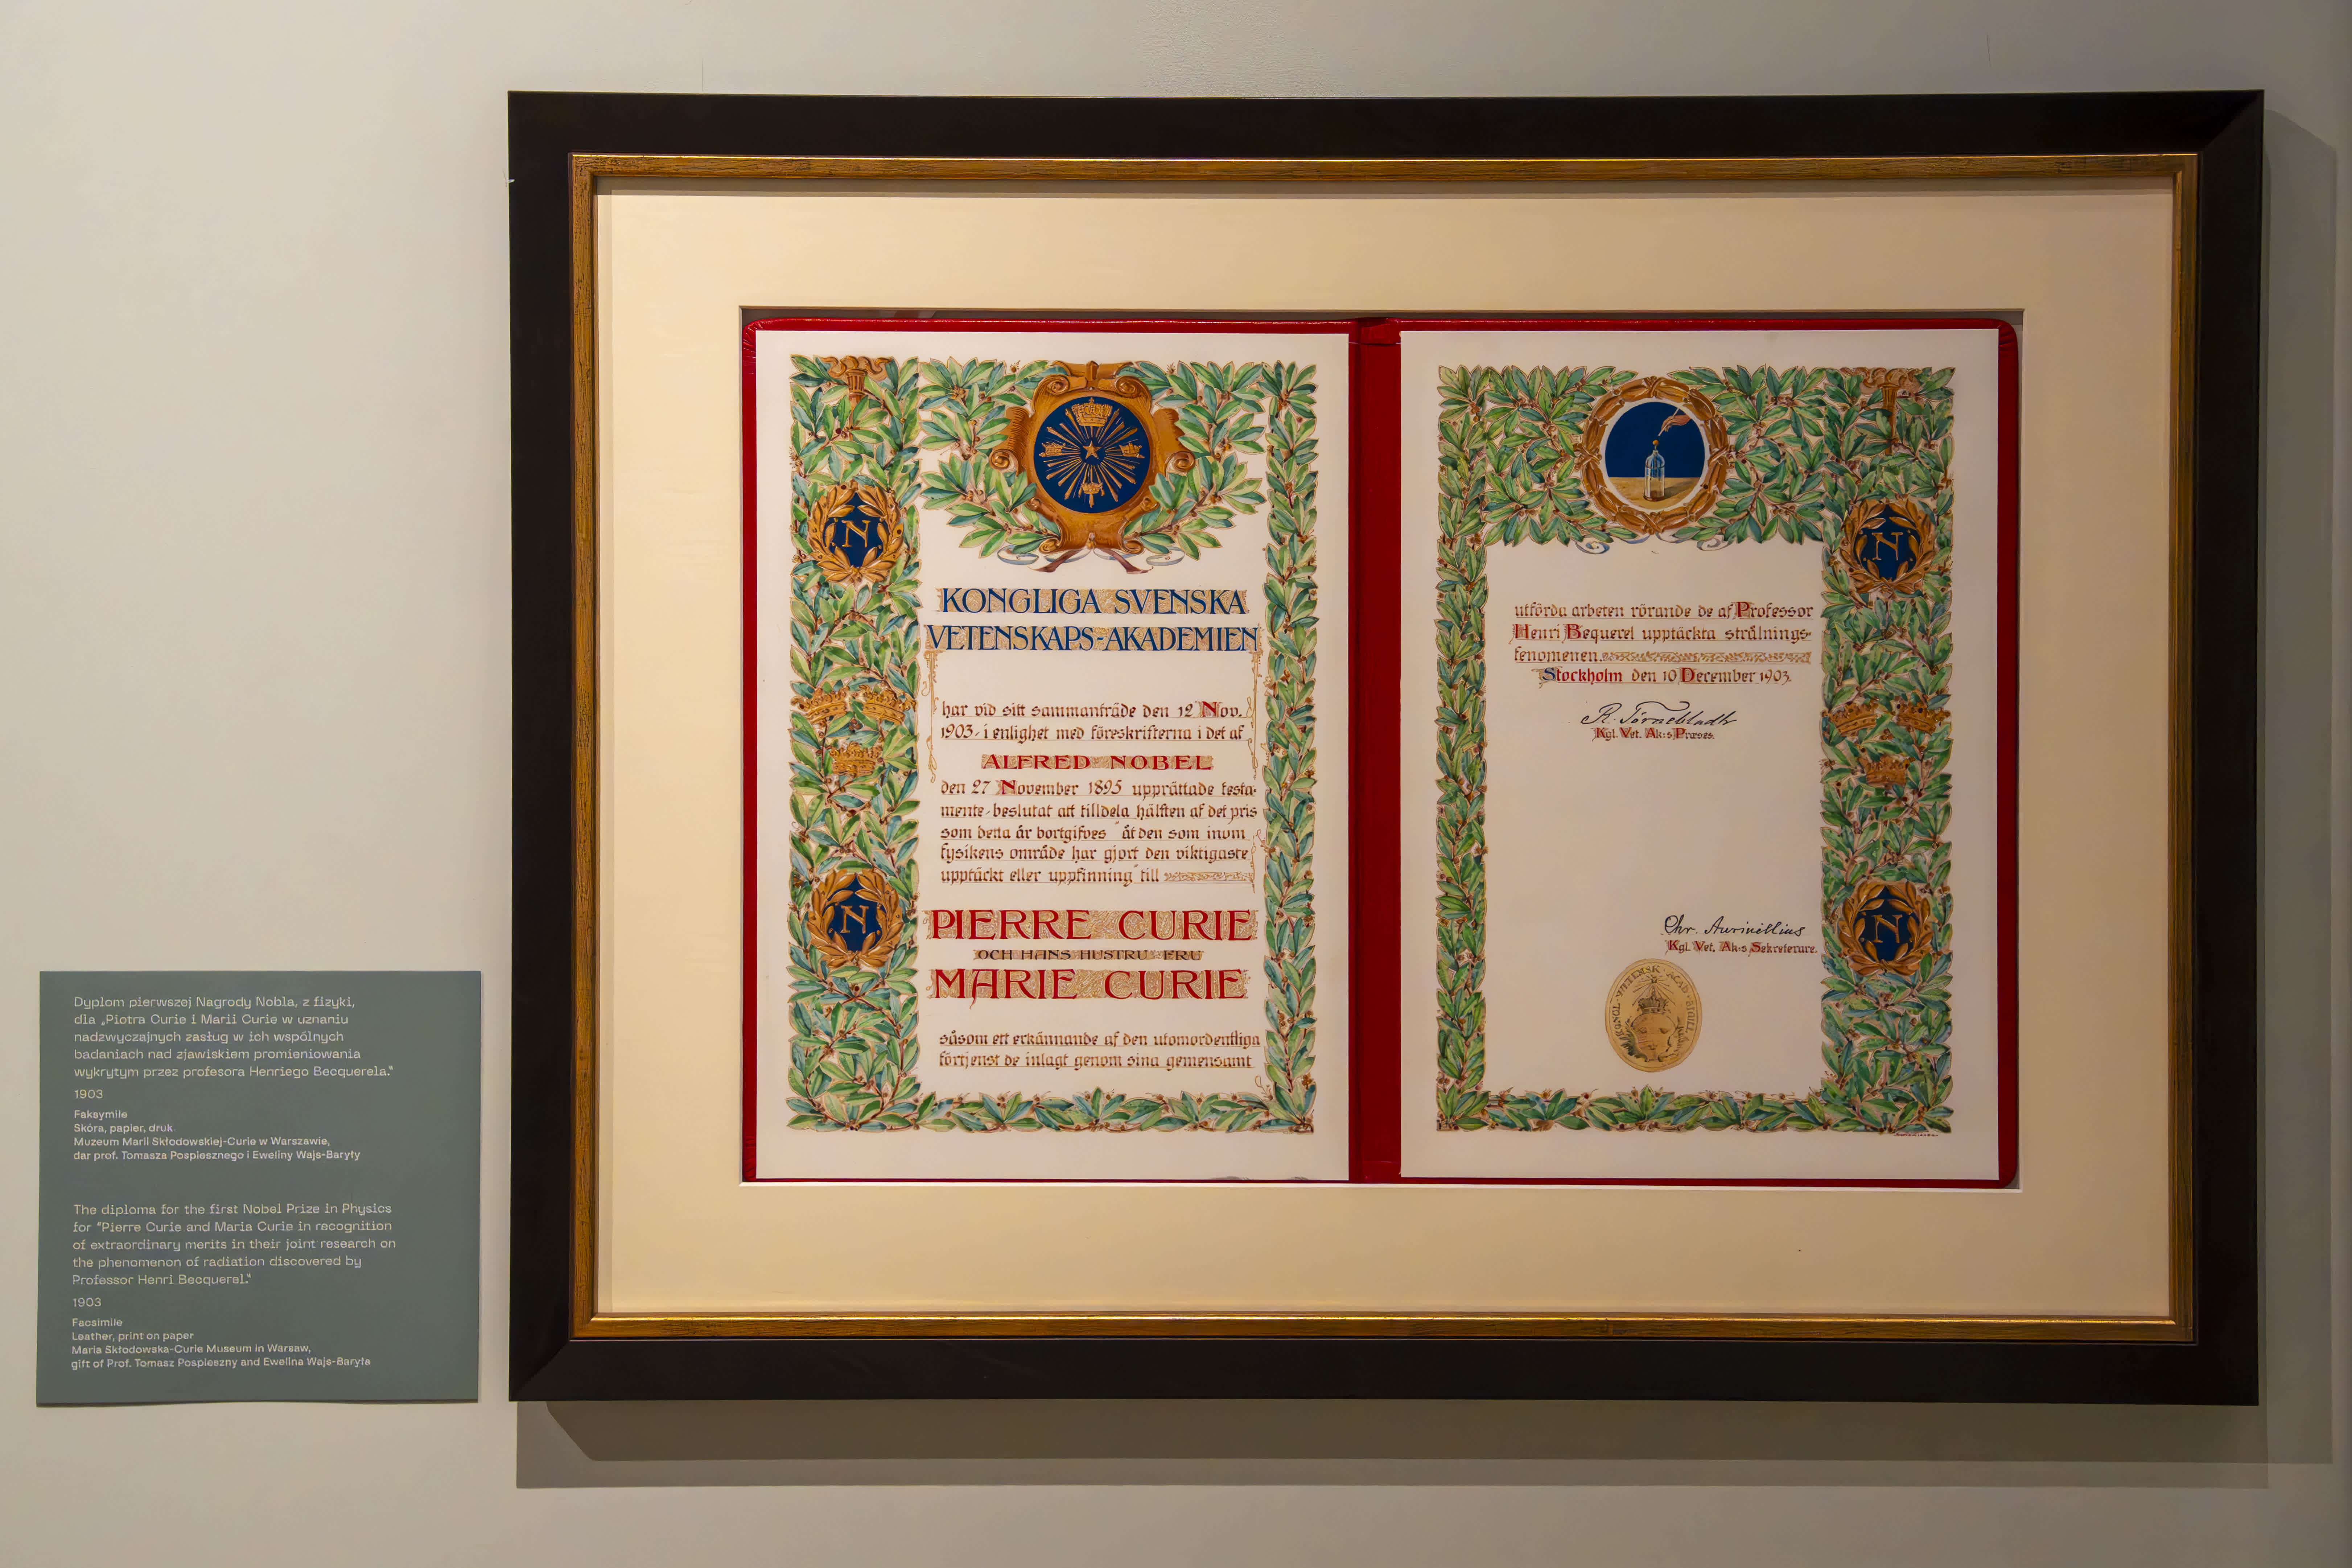 Dyplom pierwszej Nagrody Nobla, z fizyki,
dla „Piotra Curie i Marii Curie w uznaniu
nadzwyczajnych zasług w ich wspólnych
badaniach nad zjawiskiem promieniowania
wykrytym przez profesora Henriego Becquerela."
1903
Faksymile
Skóra, papier, druk
Muzeum Marii Skłodowskiej-Curie w Warszawie,
dar prof. Tomasza Pospiesznego i Eweliny Wajs-Baryły
The diploma for the first Nobel Prize in Physics
for "Pierre Curie and Maria Curie in recognition
of extraordinary merits in their joint research on
the phenomenon of radiation discovered by
Professor Henri Becquerel."
1903
Facsimile
Leather, print on paper
Maria Skłodowska-Curie Museum in Warsaw,
gift of Prof. Tomasz Pospieszny and Ewelina Wajs-Baryła
N
N
KONGLIGA SVENSKA
VETENSKAPS-AKADEMIEN
har vid sitt sammanträde den 12 Nov.
1903, i enlighet med föreskrifterna i det af
ALFRED NOBEL
den 27 November 1895 upprättade testa-
mente, beslutat att tilldela hälften af det pris
som detta år bortgifves "åt den som inom
fysikens område har gjort den viktigaste
upptäckt eller uppfinning" till
PIERRE CURIE
OCH HANS HUSTRU FRU
MARIE CURIE
såsom ett erkännande af den utomordentliga
förtjenst de inlagt genom sina gemensamt
N
N
utförda arbeten rörande de af Professor
Henri Bequerel upptäckta strålnings-
fenomenen.
Stockholm den 10 December 1903.
R. Törnebladh
Kgl. Vet. Ak:s Præses.
Chr. Aurivillius
Kgl. Vet. Ak:s Sekreterare.